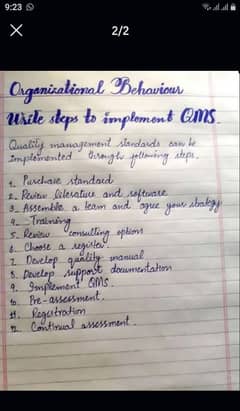 9:23
2/2
Organizational Behaviour
Write steps to implement QMS.
Quality management standards can be
implemented through following steps.
1. Purchase standard
2. Review literature and software
3. Assemble a team and agree your strategy
4. Training
5. Review consulting option
6. Choose a register
7. Develop quality manual
8. Develop support documentation
9. Implement QMS.
10. Pre-assessment.
11. Registration
12. Continual assessment.